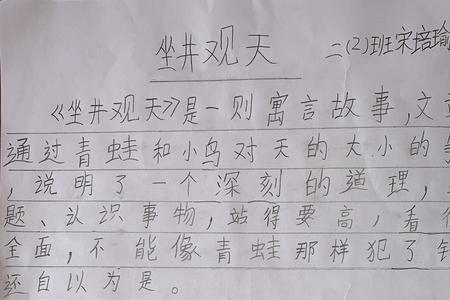 坐井观天
二(2)班宋培瑜
《坐井观天》是一则寓言故事,文章
通过青蛙和小鸟对天的大小的争
,说明了一个深刻的道理,
题、认识事物,站得要高,看得
全面,不能像青蛙那样犯了错
还自以为是。